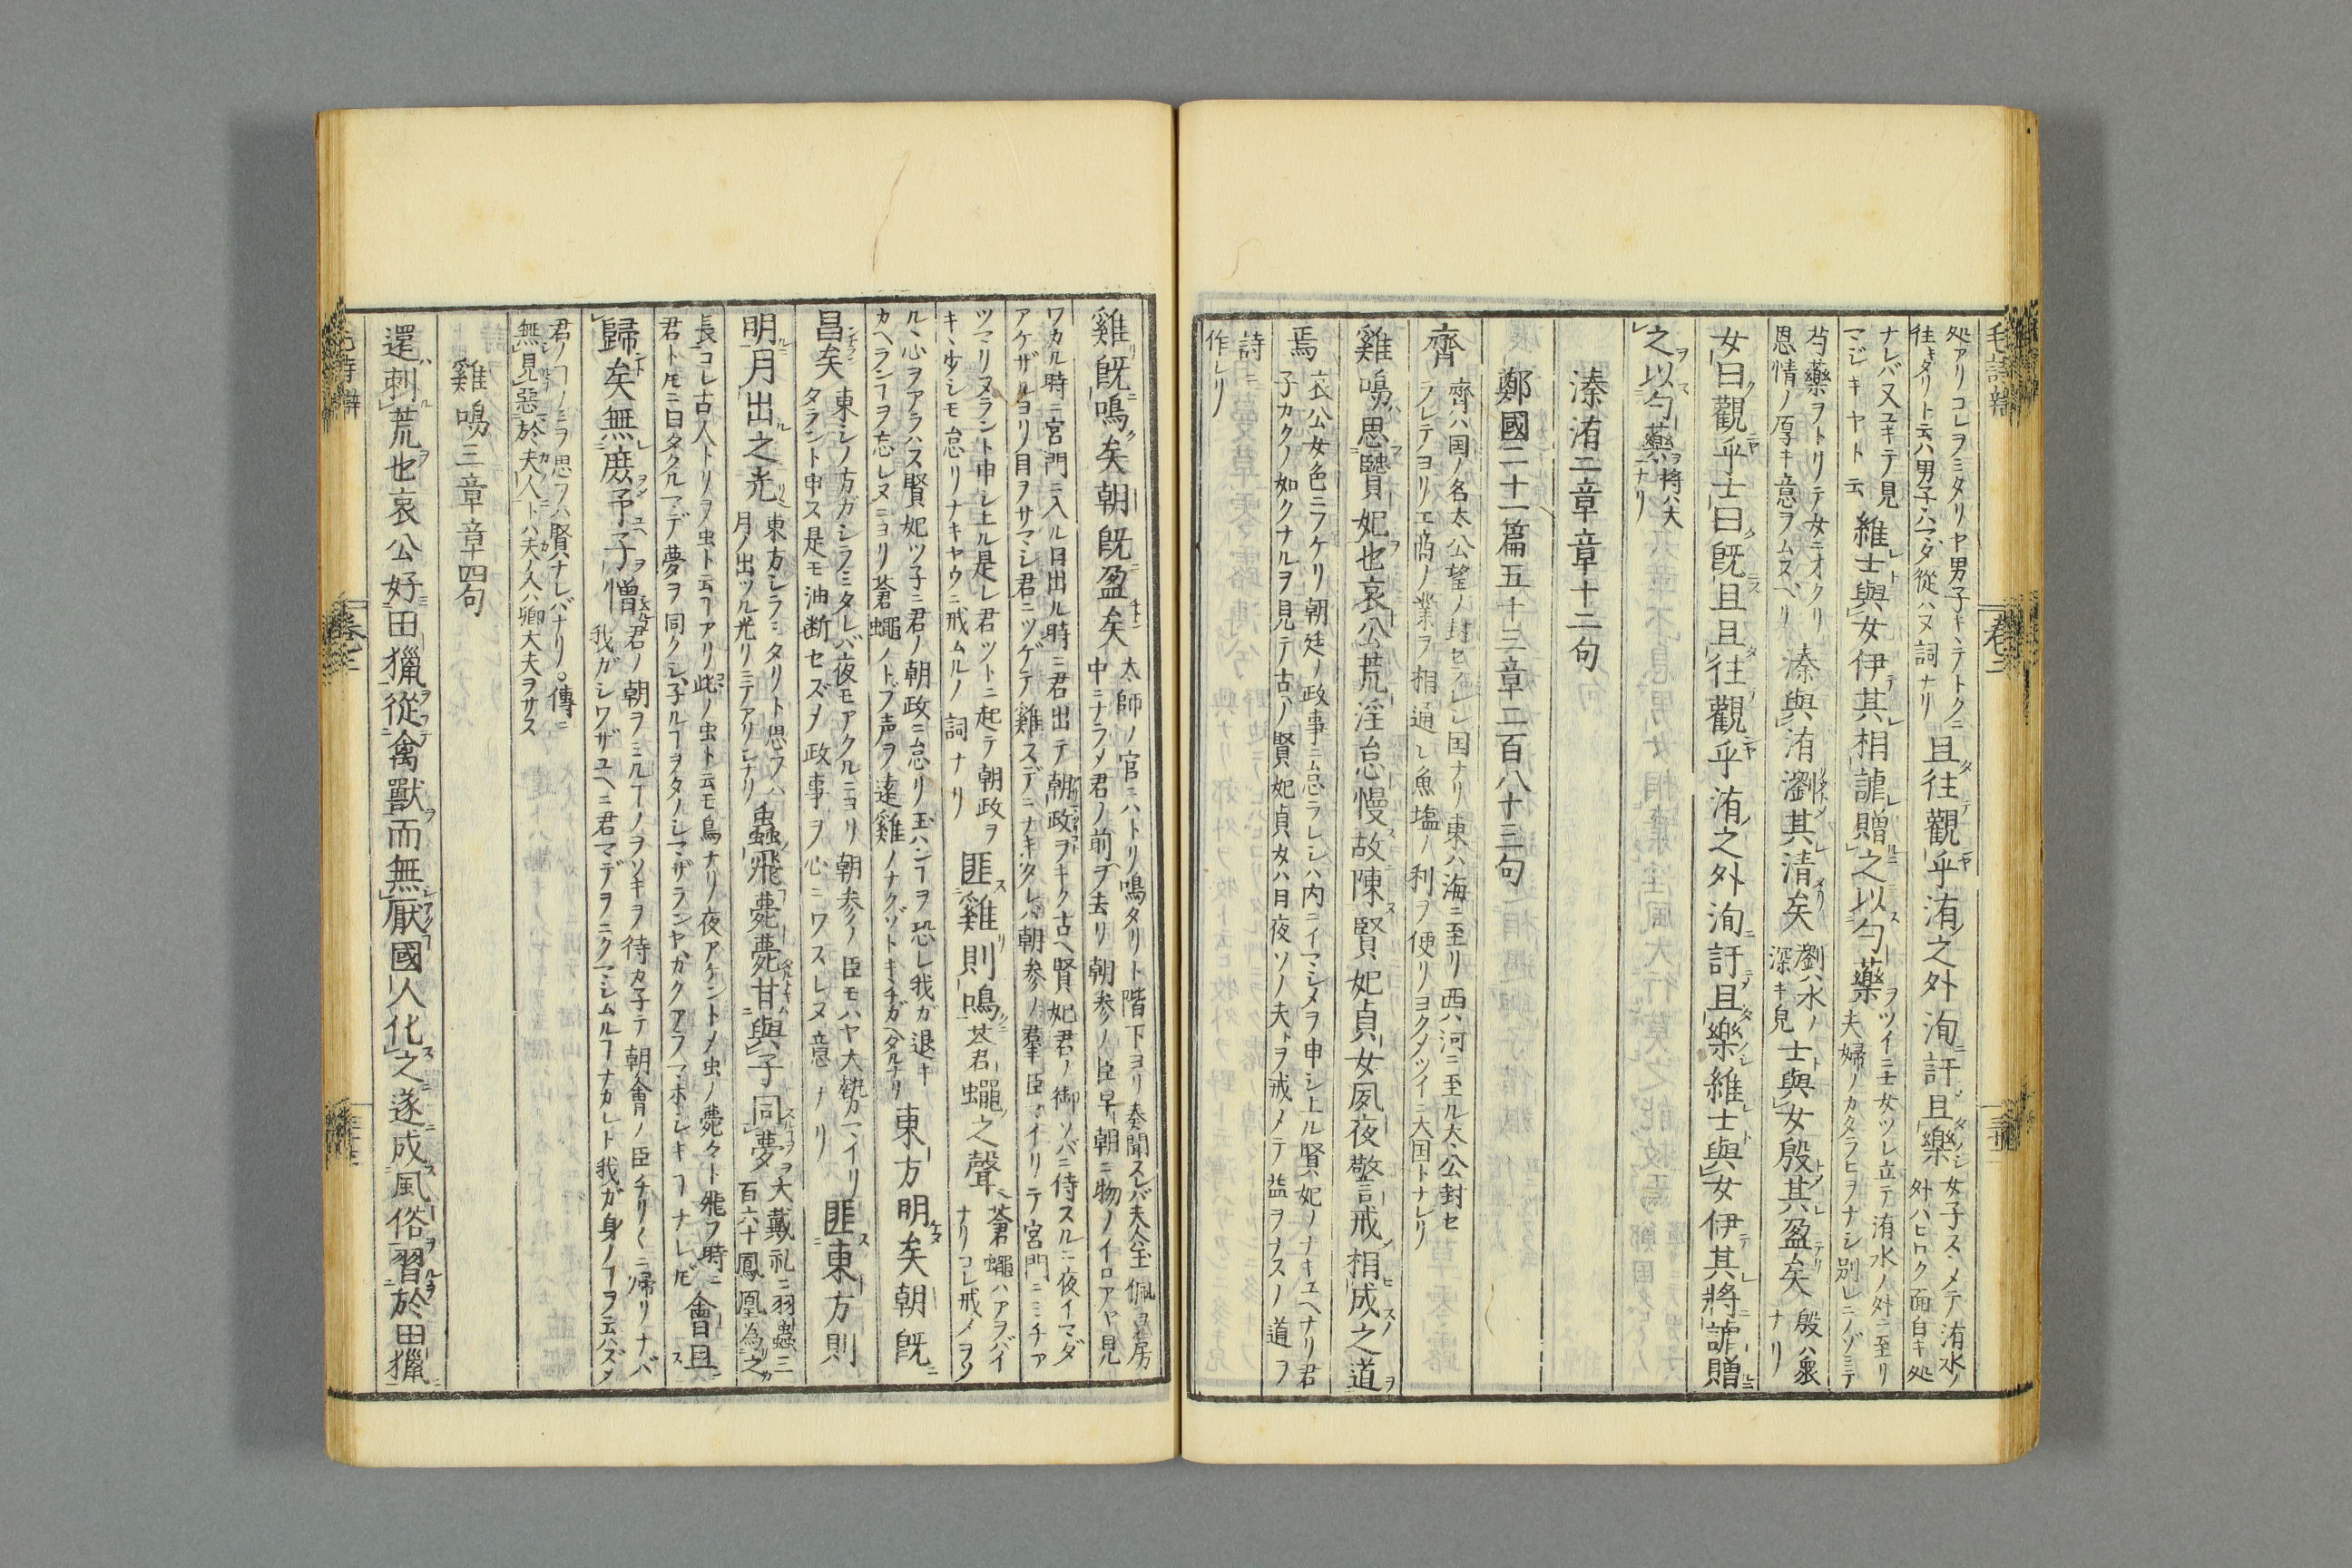 処アリコレヲミタリヤ男子キヽテトクニ
往キタリト云ハ男子ハマダ從ハヌ詞ナリ
且往觀乎洧之外洵訏且樂
女子スヽメテ洧水ノ
外ハヒロク面白キ処
ナレバ又ユキテ見
マジキヤト云
維士與女伊其相謔贈之以勺藥
ツイニ士女ツレ立テ洧水ノ外ニ至リ
夫婦ノカタラヒヲナシ別レニノゾミテ
芍藥ヲトリテ女ニオクリ
恩情ノ厚キ意ヲムスベリ
溱與洧瀏其清矣
瀏ハ水ノ
深キ見
士與女殷其盈矣
殷ハ衆
ナリ
女曰觀乎士曰既且且往觀乎洧之外洵訏且樂維士與女伊其將謔贈
之以勺藥
將ハ大
ナリ
溱洧二章章十二句
鄭國二十一篇五十三章二百八十三句
齊
齊ハ国ノ名太公望ノ封セラレシ国ナリ東ハ海ニ至リ西ハ河ニ至ル太公封セ
ラレテヨリ工商ノ業ヲ相通シ魚塩ノ利ヲ便リヨクメツイニ大国トナレリ
雞鳴思賢妃也哀公荒淫怠慢故陳賢妃貞女夙夜警戒相成之道
焉
哀公女色ニフケリ朝廷ノ政事ニ怠ラレシハ内ニイマシメヲ申シ上ル賢妃ノナキユヘナリ君
子カクノ如クナルヲ見テ古ノ賢妃貞女ハ日夜ソノ夫ヲ戒メテ益ヲナスノ道ヲ
詩ニ
作レリ
雞既鳴矣朝既盈矣
太師ノ官ニハトリ鳴タリト階下ヨリ奏聞スレバ夫人玉佩ヲ房
中ニナラメ君ノ前ヲ去リ朝参ノ臣早朝ニ物ノイロアヤ見
ワカル時ニ宮門ニ入ル日出ル時ニ君出テ朝政ヲキク古ヘ賢妃君ノ御ソバニ侍スルニ夜イマダ
アケザルヨリ目ヲサマシ君ニツゲテ雞スデニナキタレバ朝参ノ羣臣マイリテ宮門ニミチア
ツマリヌラント申シ上ル是レ君ツトニ起テ朝政ヲ
キヽ少シモ怠リナキヤウニ戒ムルノ詞ナリ
匪雞則鳴蒼蠅之聲
蒼蠅ハアヲバイ
ナリコレ戒メヲソ
ルヽ心ヲアラハス賢妃ツ子ニ君ノ朝政ニ怠リ玉ハンコヲ恐レ我ガ退キ
カヘランコヲ忘レヌニヨリ蒼蠅ノトブ声ヲ遠雞ノナクゾトキヽチガヘタルナリ
東方明矣朝既
昌矣
東ノ方ガシラミタレバ夜モアクルニヨリ朝参ノ臣モハヤ大勢マイリ
タラント申ス是モ油断セズメ政事ヲ心ニワスレヌ意ナリ
匪東方則
明月出之光
東方シラミタリト思フハ
月ノ出ツル光リニテアリシナリ
蟲飛薨薨甘與子同夢
大戴礼ニ羽蟲三
百六十鳳凰為之
長コレ古人トリヲ虫ト云コアリ此ノ虫ト云モ鳥ナリ夜アケントメ虫ノ薨々ト飛フ時ニ
君トモニ日タクルマデ夢ヲ同クシ子ルコヲタノシマザランヤカクアラマホシキコナレドモ
會且
歸矣無庶予子憎
君ノ朝ヲミルコノヲソキヲ待カ子テ朝會ノ臣チリ〱ニ帰リナバ
我ガシワザユヘニ君マデヲニクマシムルコナカレト我ガ身ノコヲ云ハズメ
君ノコノミヲ思フハ賢ナレバナリ○傳ニ
無見惡於夫人トハ夫ノ人ハ卿大夫ヲサス
雞鳴三章章四句
還刺荒也哀公好田獵從禽獸而無厭國人化之遂成風俗習於田獵